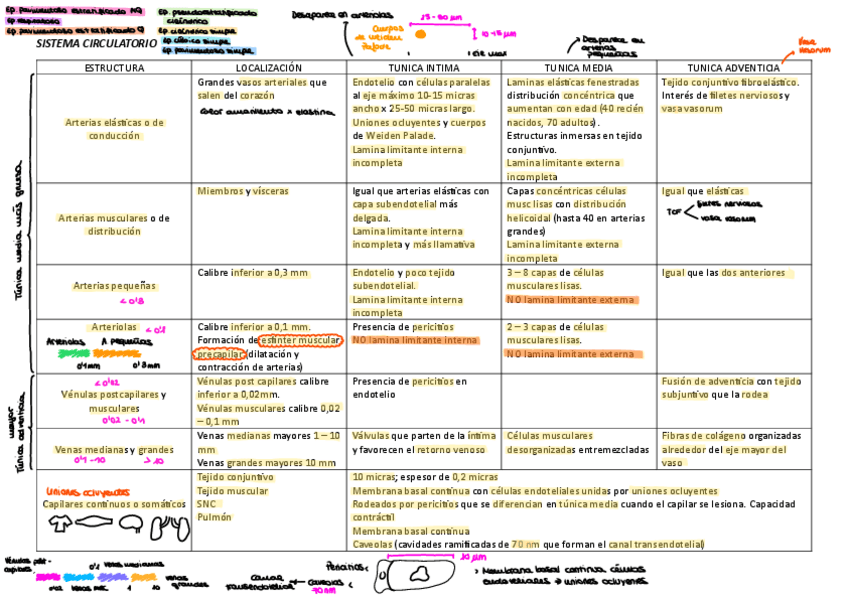 Ep. pavimentoso estratificado NQ
Ep. respiratorio
Ep. pavimentoso estratificado Q
Ep. pseudoestratificado
cilíndrico
Ep. cilíndrico simple
Ep. cúbico simple
Ep. pavimentoso simple
Desaparece en arteriolas
Cuerpos
de weiden
Palade
25-50 µm
10-15 µm
Desaparece en
arterias
pequeñas
Vasa
vasorum
SISTEMA CIRCULATORIO
ESTRUCTURA
LOCALIZACIÓN
TUNICA INTIMA
TUNICA MEDIA
TUNICA ADVENTICIA
Túnica media más gruesa
Arterias elásticas o de
conducción
Grandes vasos arteriales que
salen del corazón
Color amarillento x elastina
Endotelio con células paralelas
al eje máximo 10-15 micras
ancho x 25-50 micras largo.
Uniones ocluyentes y cuerpos
de Weiden Palade.
Lamina limitante interna
incompleta
Laminas elásticas fenestradas
distribución concéntrica que
aumentan con edad (40 recién
nacidos, 70 adultos).
Estructuras inmersas en tejido
conjuntivo.
Lamina limitante externa
incompleta
Tejido conjuntivo fibroelástico.
Interés de filetes nerviosos y
vasa vasorum
Arterias musculares o de
distribución
Miembros y vísceras
Igual que arterias elásticas con
capa subendotelial más
delgada.
Lamina limitante interna
incompleta y más llamativa
Capas concéntricas células
musc lisas con distribución
helicoidal (hasta 40 en arterias
grandes)
Lamina limitante externa
incompleta
Igual que elásticas
TCF
filetes nerviosos
vasa vasorum
Arterias pequeñas
< 0'3
Calibre inferior a 0,3 mm
Endotelio y poco tejido
subendotelial.
Lamina limitante interna
incompleta
3 – 8 capas de células
musculares lisas.
NO lamina limitante externa
Igual que las dos anteriores
Arteriolas < 0'1
Arteriolas A pequeñas
0'1 mm 0'3 mm
Calibre inferior a 0,1 mm.
Formación de esfínter muscular
precapilar (dilatación y
contracción de arterias)
Presencia de pericitios
NO lamina limitante interna
2 – 3 capas de células
musculares lisas.
NO lamina limitante externa
mayor
Túnica adventicia
< 0'02
Vénulas postcapilares y
musculares
0'02 - 0'1
Vénulas post capilares calibre
inferior a 0,02mm.
Vénulas musculares calibre 0,02
– 0,1 mm
Presencia de pericitios en
endotelio
Fusión de adventicia con tejido
subjuntivo que la rodea
Venas medianas y grandes
0'1 - 10 > 10
Venas medianas mayores 1 – 10
mm
Venas grandes mayores 10 mm
Válvulas que parten de la íntima
y favorecen el retorno venoso
Células musculares
desorganizadas entremezcladas
Fibras de colágeno organizadas
alrededor del eje mayor del
vaso
Uniones ocluyentes
Capilares continuos o somáticos
Tejido conjuntivo
Tejido muscular
SNC
Pulmón
10 micras; espesor de 0,2 micras
Membrana basal continua con células endoteliales unidas por uniones ocluyentes
Rodeados por pericitios que se diferencian en túnica media cuando el capilar se lesiona. Capacidad
contráctil
Membrana basal continua
Caveolas (cavidades ramificadas de 70 nm que forman el canal transendotelial)
Vénulas post-
capilares
0'1 venas medianas
venas
grandes
1 10
Canal
transendotelial
Caveolas
70 nm
Pericitios
10 µm
Membrana basal continua células
endoteliales → uniones ocluyentes